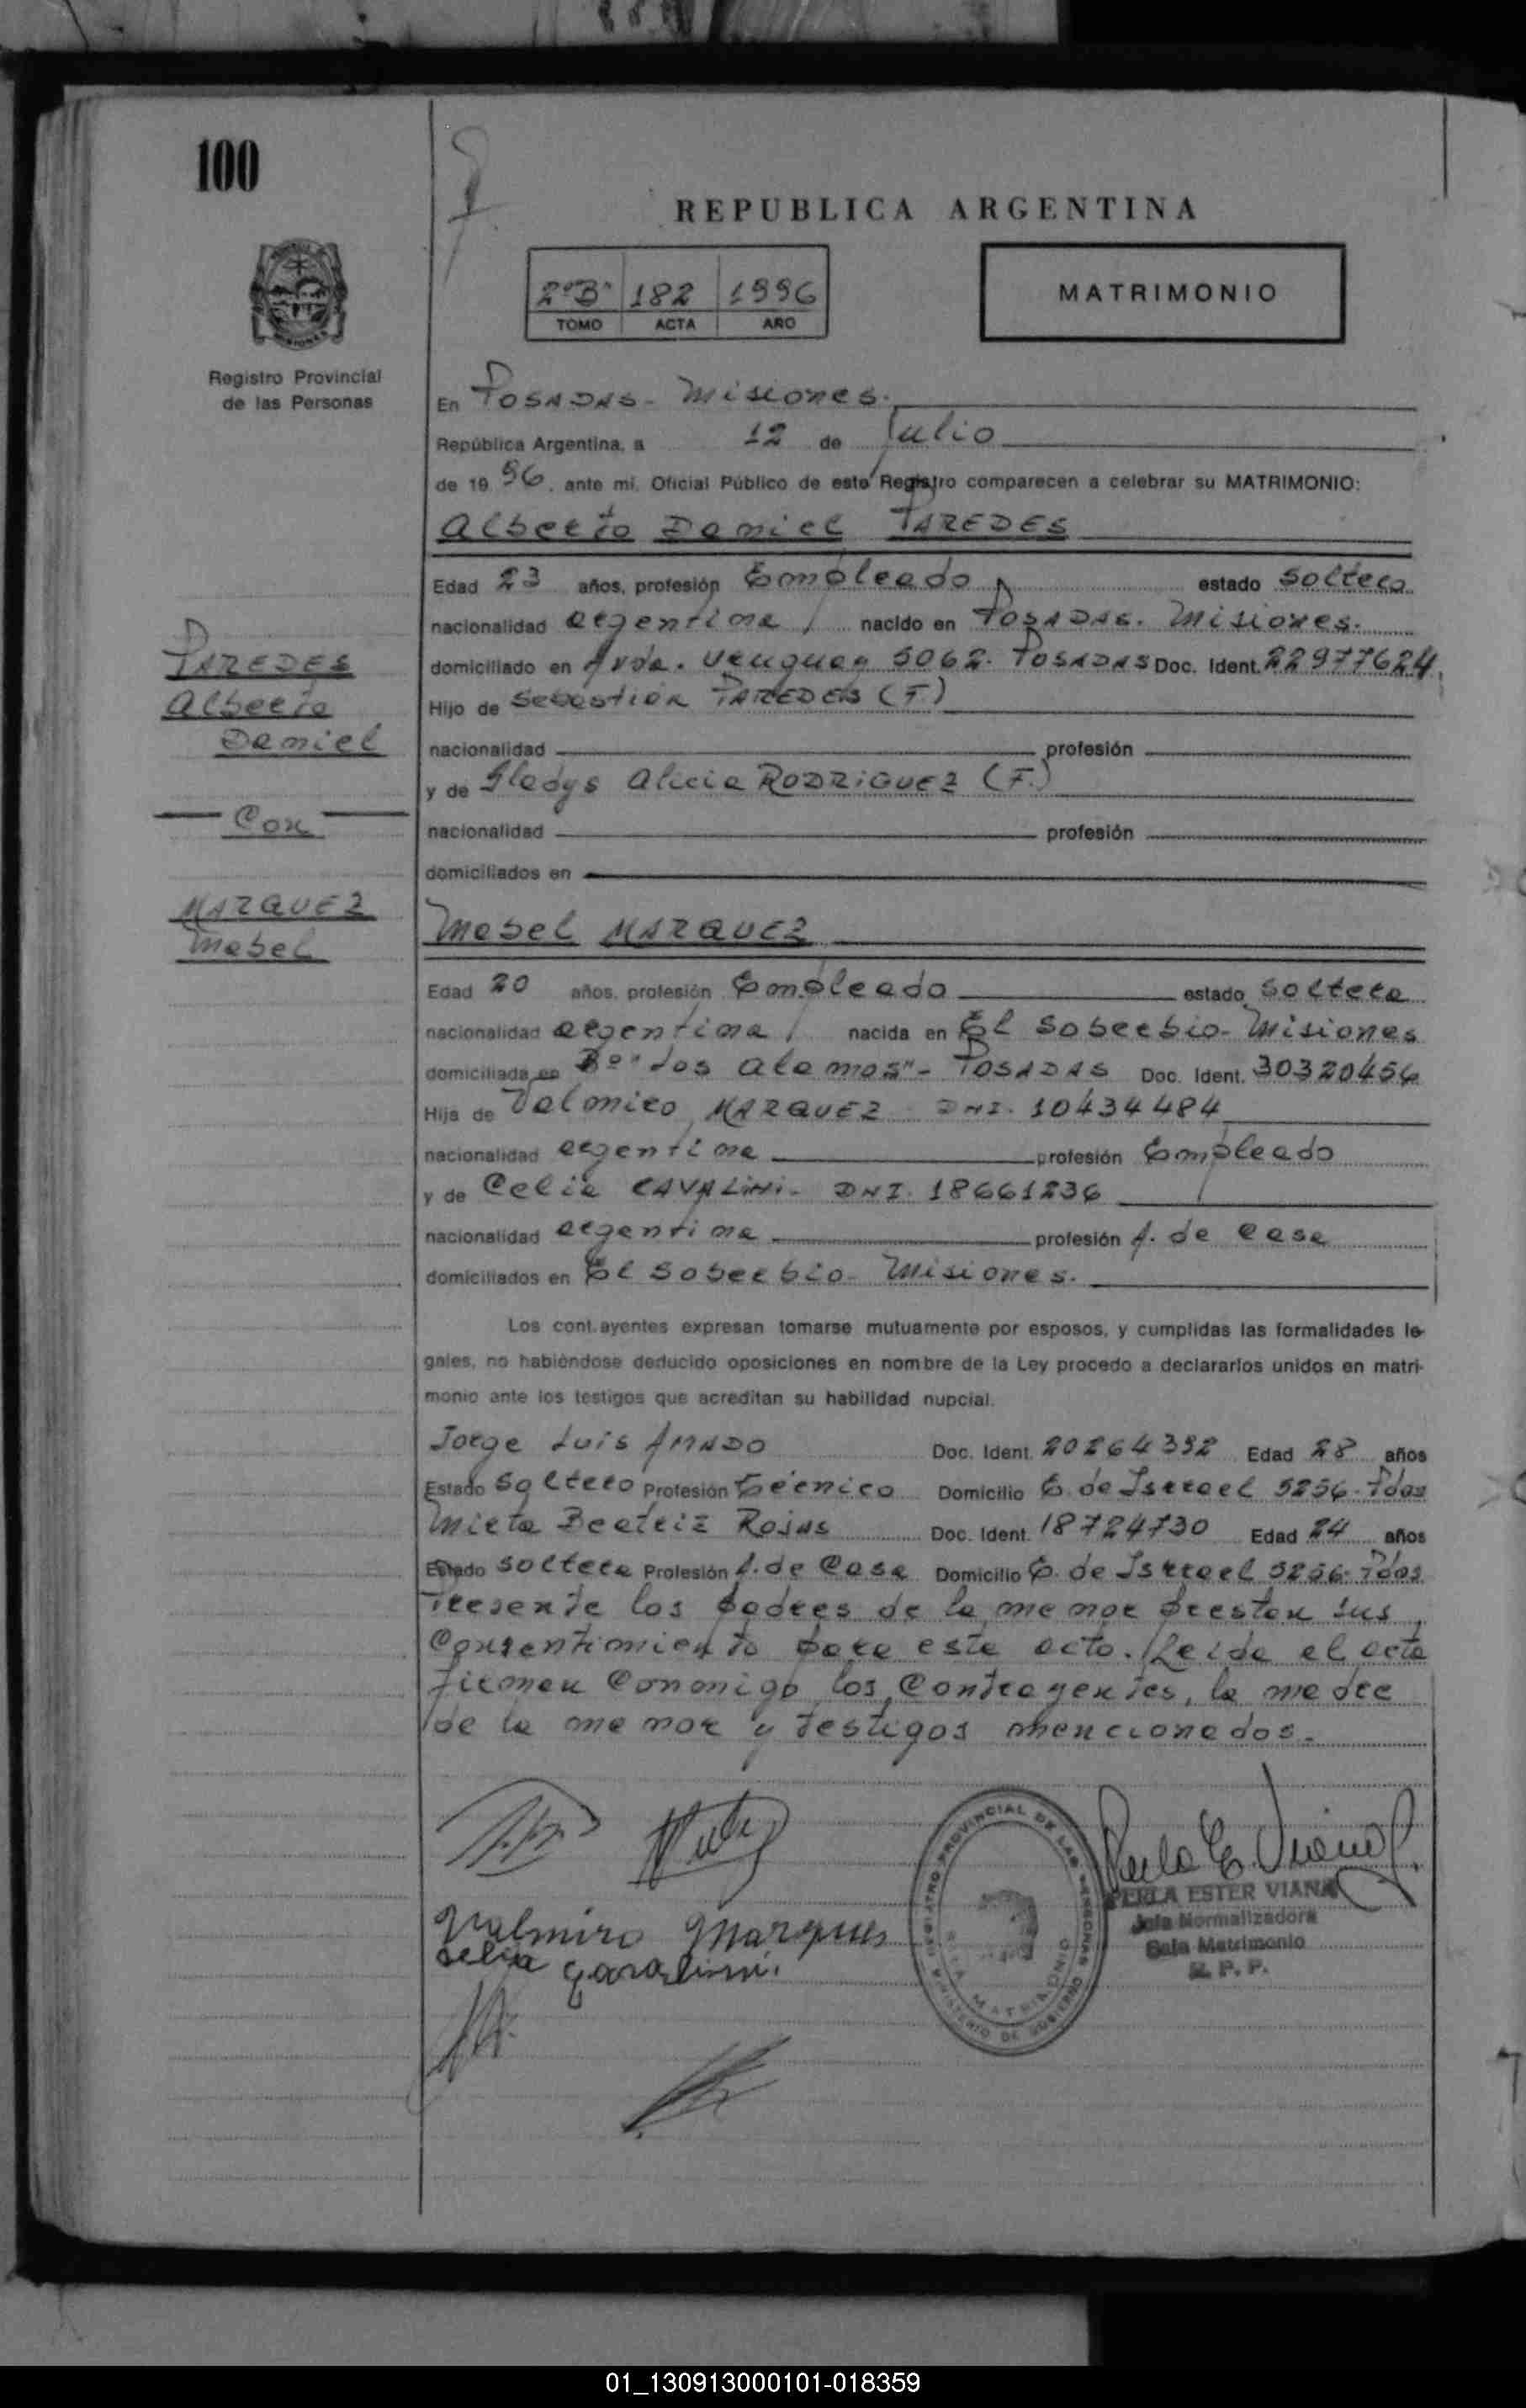 100
REPUBLICA ARGENTINA
2º"B" 182 1996
TOMO ACTA AÑO
MATRIMONIO
Registro Provincial
de las Personas
En POSADAS - Misiones.
República Argentina, a 12 de Julio
de 19 96, ante mi, Oficial Público de este Registro comparecen a celebrar su MATRIMONIO:
Alberto Daniel PAREDES
Edad 23 años, profesión Empleado estado Soltero
nacionalidad argentina nacido en POSADAS. Misiones.
domiciliado en Avda. Uruguay 5062. POSADAS Doc. Ident. 22977624
Hijo de Sebastián PAREDES (F.)
nacionalidad profesión
y de Gladys Alicia RODRIGUEZ (F.)
nacionalidad profesión
domiciliados en
PAREDES
Alberto
Daniel
Con
MARQUEZ
Mabel
Mabel MARQUEZ
Edad 20 años, profesión Empleado estado Soltera
nacionalidad argentina nacida en El Soberbio - Misiones
domiciliada en Bº "Los Alamos" - POSADAS Doc. Ident. 30320456
Hija de Valmiro MARQUEZ DNI. 10434484
nacionalidad argentina profesión Empleado
y de Celia CAVALINI - DNI. 18661236
nacionalidad argentina profesión A. de Casa
domiciliados en El Soberbio - Misiones.
Los cont.ayentes expresan tomarse mutuamente por esposos, y cumplidas las formalidades le-
gales, no habiéndose deducido oposiciones en nombre de la Ley procedo a declararlos unidos en matri-
monio ante los testigos que acreditan su habilidad nupcial.
Jorge Luis AMADO Doc. Ident. 20264392 Edad 28 años
Estado Soltero Profesión Técnico Domicilio E. de Isrrael 5256 - Pdas
Mirta Beatriz Rojas Doc. Ident. 18724730 Edad 24 años
Estado Soltera Profesión A. de Casa Domicilio E. de Isrrael 5256 - Pdas
Presente los padres de la menor prestan sus
Consentimiento para este acto. Leida el acta
firman Conmigo los Contrayentes, la madre
de la menor y testigos mencionados.
Valmiro Marques
Celia Cavalini
REGISTRO PROVINCIAL DE LAS PERSONAS
SALA MATRIMONIO
MINISTERIO DE GOBIERNO
PERLA ESTER VIANA
Jefa Normalizadora
Sala Matrimonio
R. P. P.
01_130913000101-018359